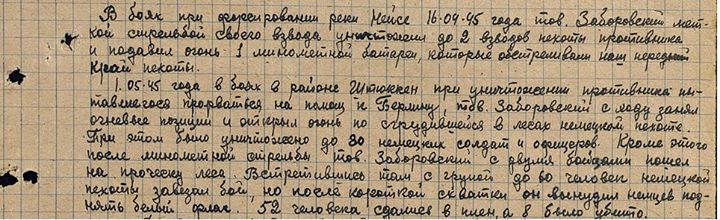 В боях при форсировании реки Нейсе 16-04-45 года тов. Заборовский мет-
кой стрельбой своего взвода уничтожил до 2 взводов пехоты противника
и подавил огонь 1 минометной батареи, которые обстреливали наш передний
край пехоты.
1.05-45 года в боях в районе Штоккен при уничтожении противника пы-
тавшегося прорваться на помощь к Берлину, тов. Заборовский с ходу занял
огневые позиции и открыл огонь по сгрудившейся в лесах немецкой пехоте.
При этом было уничтожено до 30 немецких солдат и офицеров. Кроме этого
после минометной стрельбы тов. Заборовский с двумя бойцами пошел
на проческу леса. Встретившись там с групой до 60 человек немецкой
пехоты завязал бой, но после короткой схватки он вынудил немцев под-
нять белый флаг. 52 человека сдались в плен, а 8 было убито.